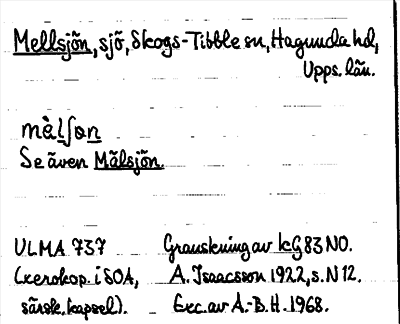 Mellsjön, sjö, Skogs-Tibble sn, Hagunda hd,
Upps. län.
mèlʃon
Se även Mälsjön.
ULMA 737 Granskning av kG 83 NO.
(xerokop. i SOA, A. Isaacsson 1922, s. N 12.
särsk. kapsel). Exc. av A.-B. H. 1968.